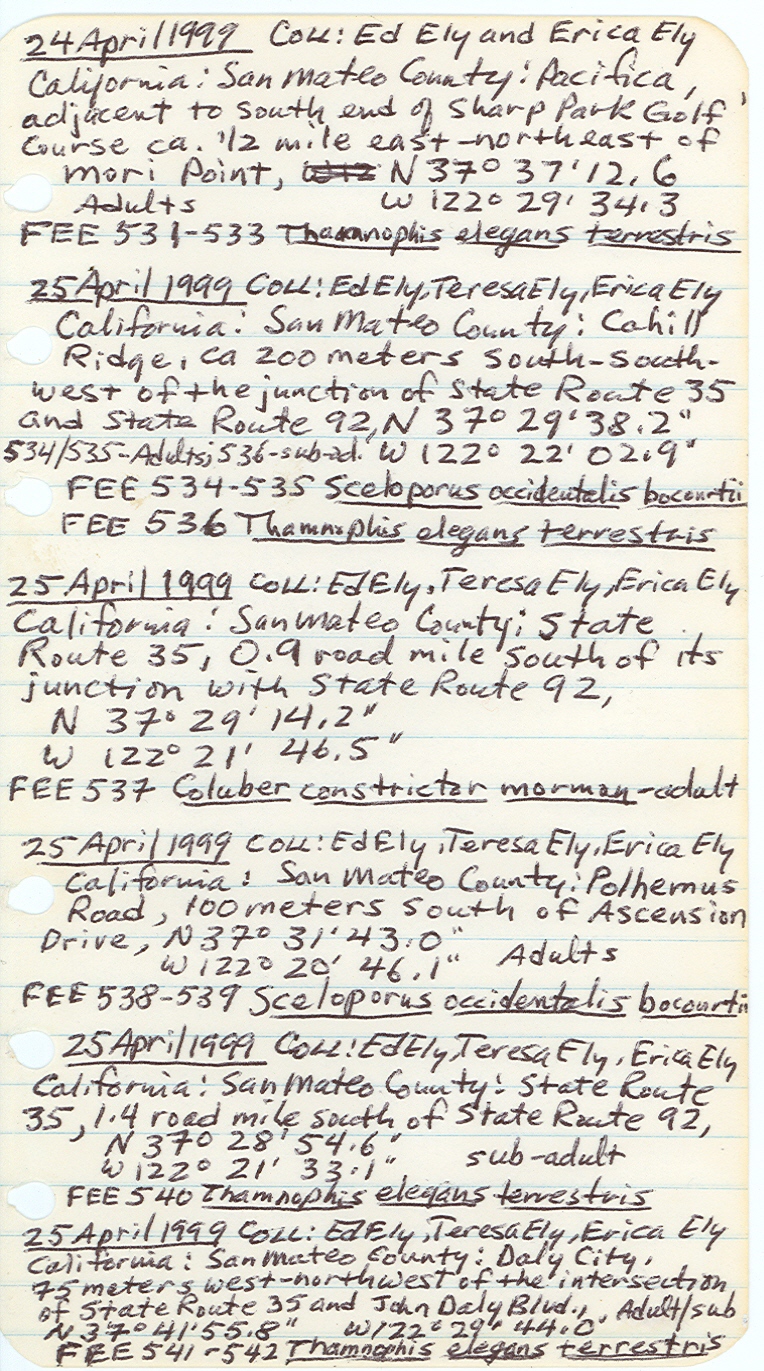 24 April 1999 Coll: Ed Ely and Erica Ely
California: San Mateo County: Pacifica,
adjacent to south end of Sharp Park Golf
Course ca. 1/2 mile east-northeast of
Mori Point, N 37° 37' 12.6
Adults W 122° 29' 34.3
FEE 531-533 Thamnophis elegans terrestris
25 April 1999 Coll: Ed Ely, Teresa Ely, Erica Ely
California: San Mateo County: Cahill
Ridge, ca 200 meters south-south-
west of the junction of State Route 35
and State Route 92, N 37° 29' 38.2"
534/535-Adults; 536-sub-ad. W 122° 22' 02.9"
FEE 534-535 Sceloporus occidentalis bocourtii
FEE 536 Thamnophis elegans terrestris
25 April 1999 Coll: Ed Ely, Teresa Ely, Erica Ely
California: San Mateo County: State
Route 35, 0.9 road mile south of its
junction with State Route 92,
N 37° 29' 14.2"
W 122° 21' 46.5"
FEE 537 Coluber constrictor mormon-adult
25 April 1999 Coll: Ed Ely, Teresa Ely, Erica Ely
California: San Mateo County: Polhemus
Road, 100 meters south of Ascension
Drive, N 37° 31' 43.0"
W 122° 20' 46.1" Adults
FEE 538-539 Sceloporus occidentalis bocourtii
25 April 1999 Coll: Ed Ely, Teresa Ely, Erica Ely
California: San Mateo County: State Route
35, 1.4 road mile south of State Route 92,
N 37° 28' 54.6"
W 122° 21' 33.1" sub-adult
FEE 540 Thamnophis elegans terrestris
25 April 1999 Coll: Ed Ely, Teresa Ely, Erica Ely
California: San Mateo County: Daly City,
75 meters west-northwest of the intersection
of State Route 35 and John Daly Blvd., Adult/sub
N 37° 41' 55.8" W 122° 29' 44.0"
FEE 541-542 Thamnophis elegans terrestris